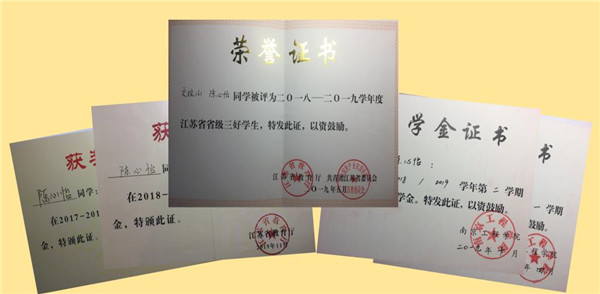 荣誉证书
陈心怡同学被评为二〇一八—二〇一九学年度
江苏省省级三好学生，特发此证，以资鼓励。
江苏省教育厅 共青团江苏省委员会
〇一九年五月
获
陈心怡 同学：
在2017-201
金，特颁此证。
获
陈心怡 同
在2018-
金，特颁此证。
江苏省教育厅
学金证书
心怡：
018 / 2019 学年第二学期
学金。特发此证，以资鼓励。
南京工程学院
书
一学期
鼓励。
程学院